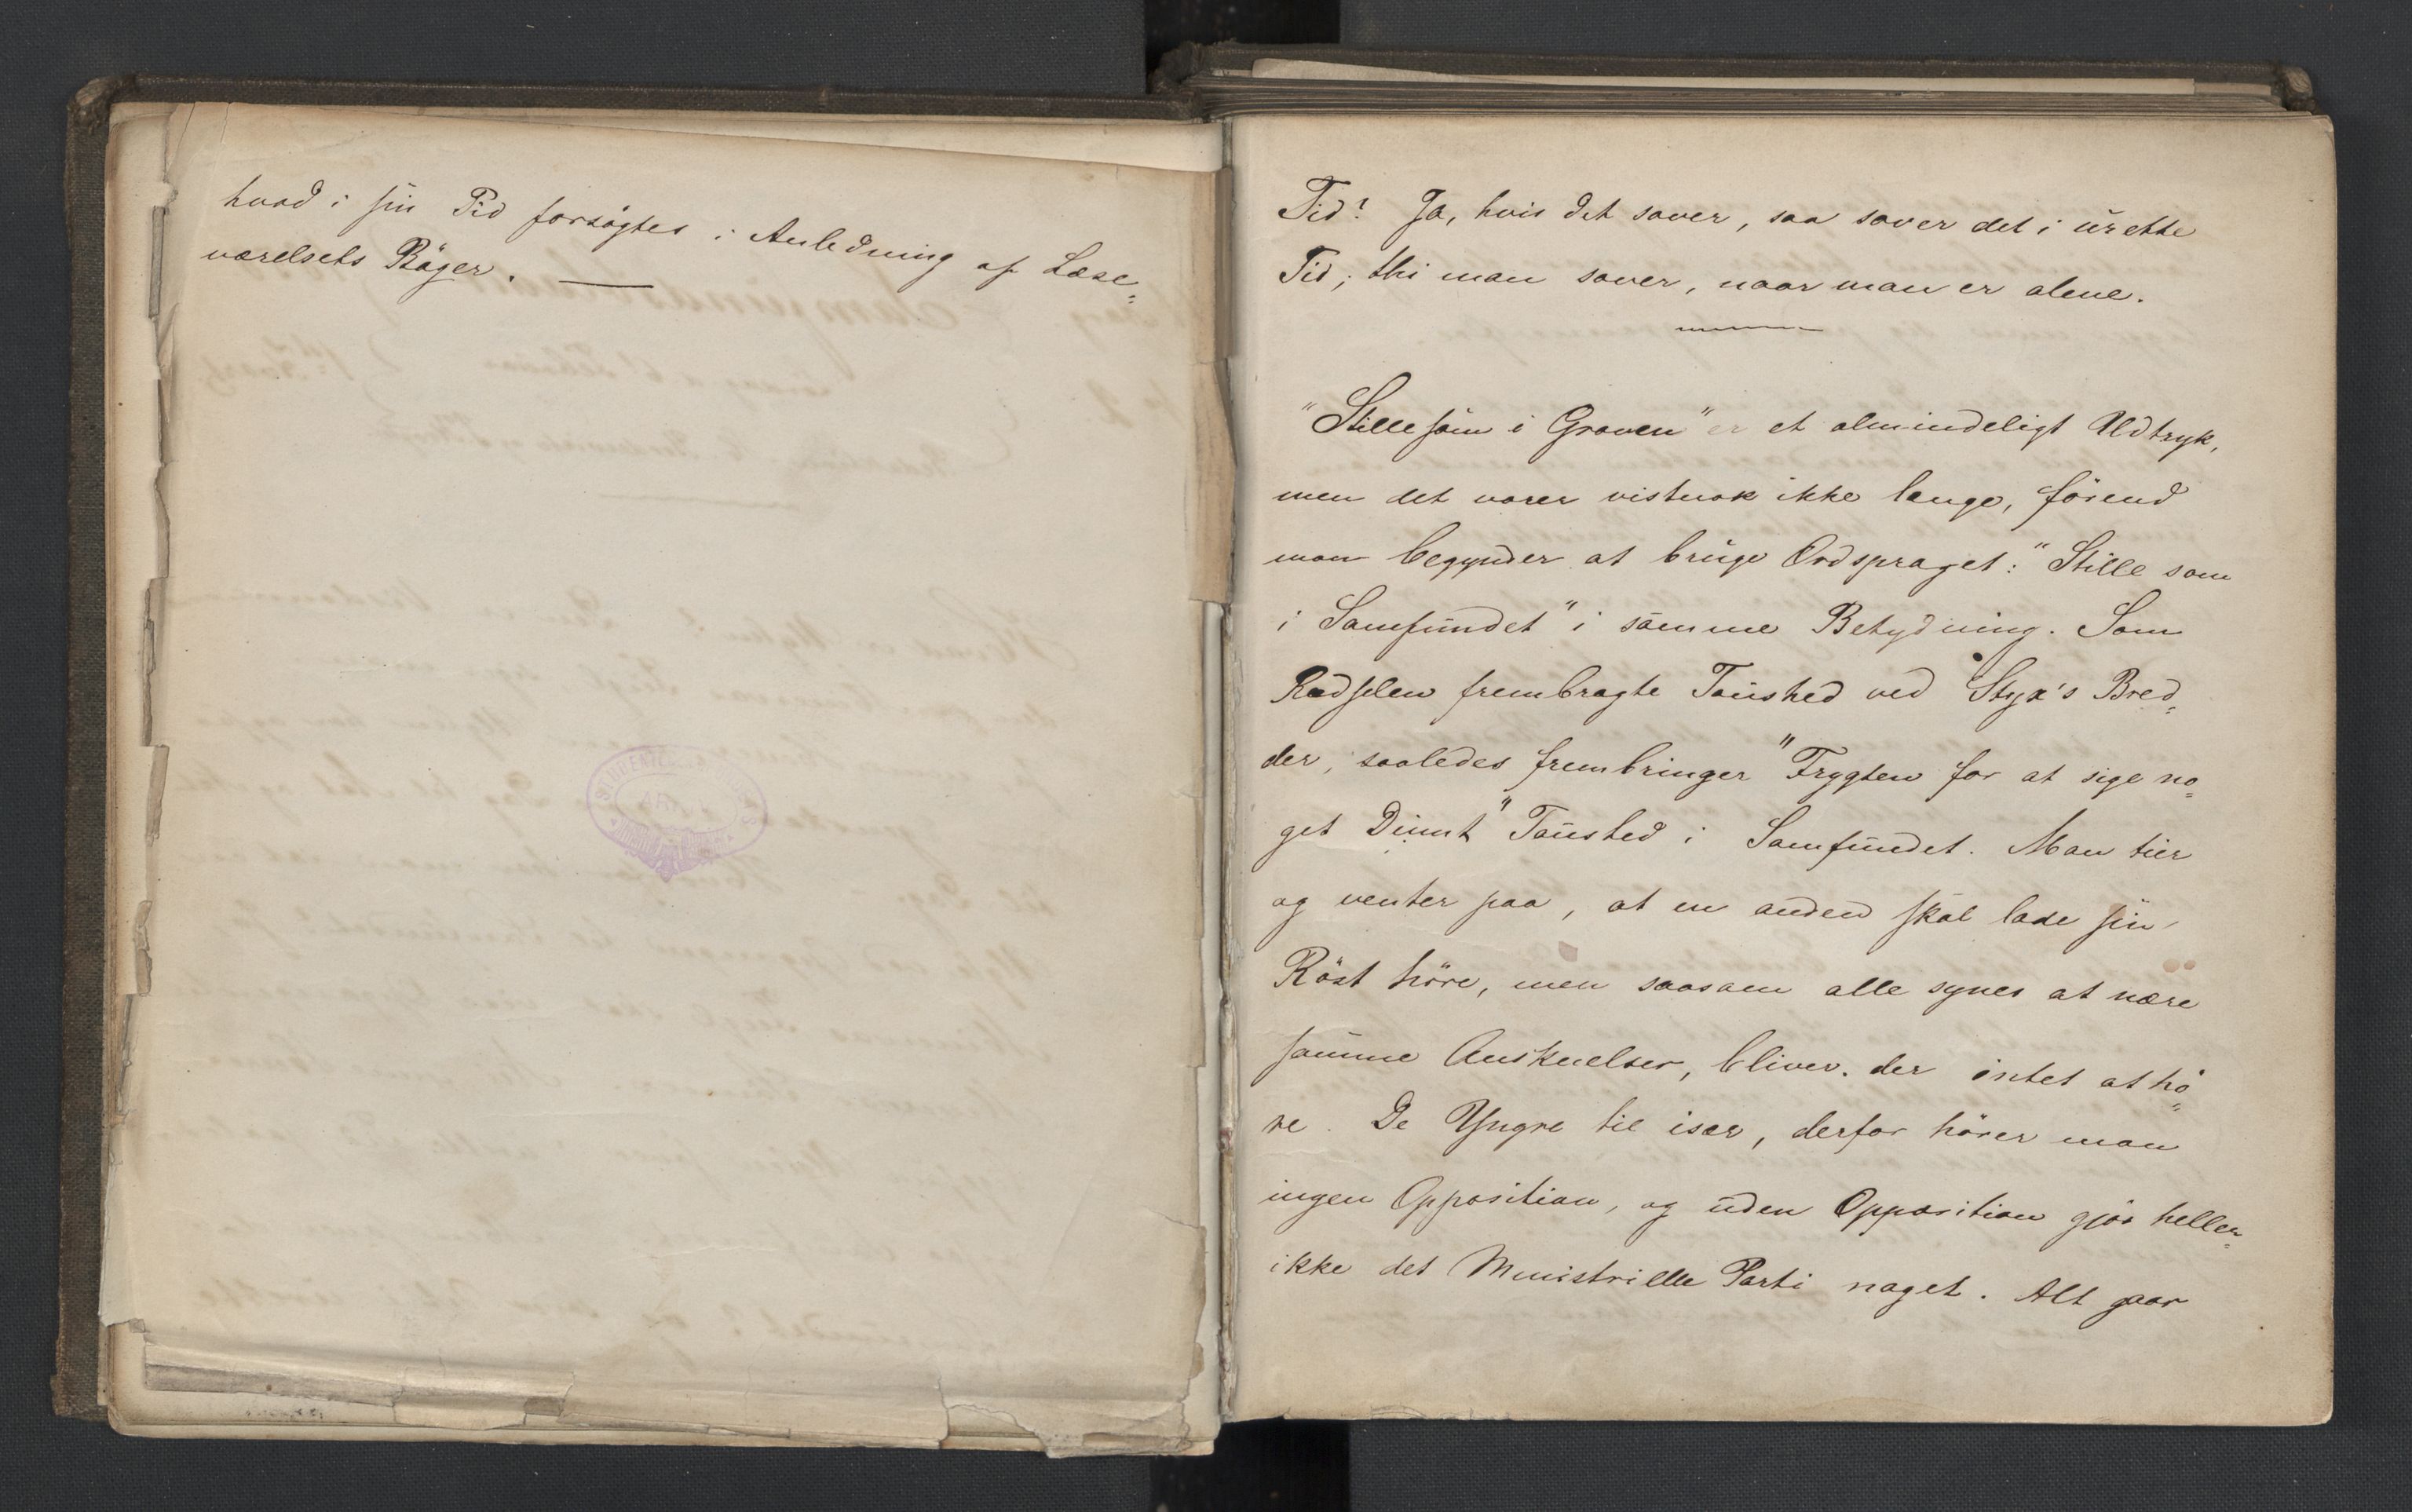 hvad i sin Tid forsögtes i Anledning af Læse=
værelsets Böger.
Tid? Ja, hvis det sover, saa sover det i urette
Tid; thi man sover, naar man er alene.
"Stille som i Graven" er et almindeligt Udtryk,
men det varer vistnok ikke længe, förend
man begynder at bruge Ordspraget: "Stille som
i Samfundet" i samme Betydning. Som
Rædselen frembragte Taushed ved Styx's Bred=
der, saaledes frembringer "Frygten for at sige no=
get Dumt" Taushed i Samfundet. Man tier
og venter paa, at en anden skal lade sin
Röst höre, men saasom alle synes at nære
samme Anskuelser, bliver der intet at hö=
re. De Yngre tie især, derfor hörer man
ingen Opposition, og uden Opposition gjör heller
ikke det Ministrielle Parti noget. Alt gaar